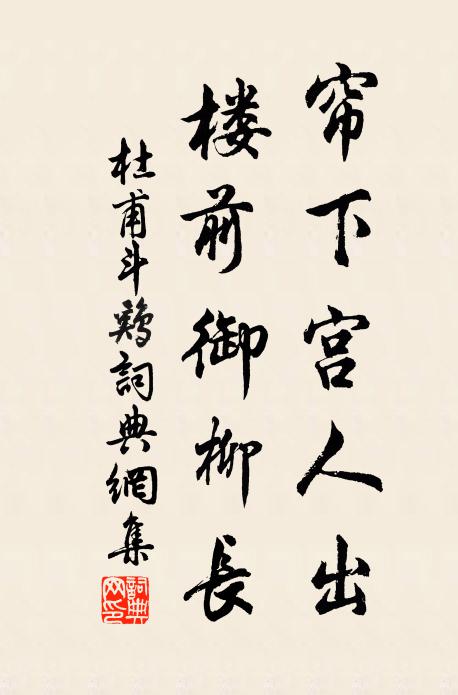 帘下宫人出
楼前御柳长
杜甫斗鸡詞典網集
詞典网印